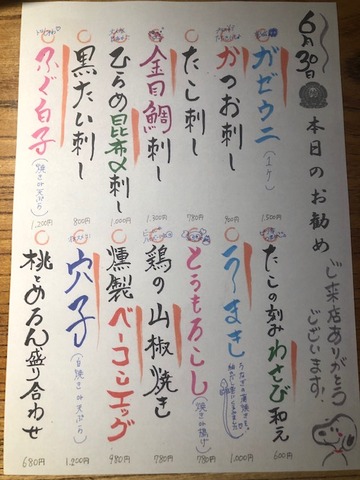 6月30日
本日のお勧め
ご来店ありがとう
ございます!
ガゼウニ
1,500円
かつお刺し
800円
たこ刺し
780円
金目鯛刺し
1,300円
ひらめ昆布〆刺し
1,000円
黒たい刺し
800円
ふぐ白子
(焼き or 天ぷら)
1,200円
たこの刻みわさび和え
600円
う~まきし
1,000円
とうもろこし
(焼き or 揚げ)
780円
鶏の山椒焼き
780円
燻製ベーコンエッグ
980円
穴子
(白焼き or 天ぷら)
1,200円
桃とめろん盛り合わせ
680円